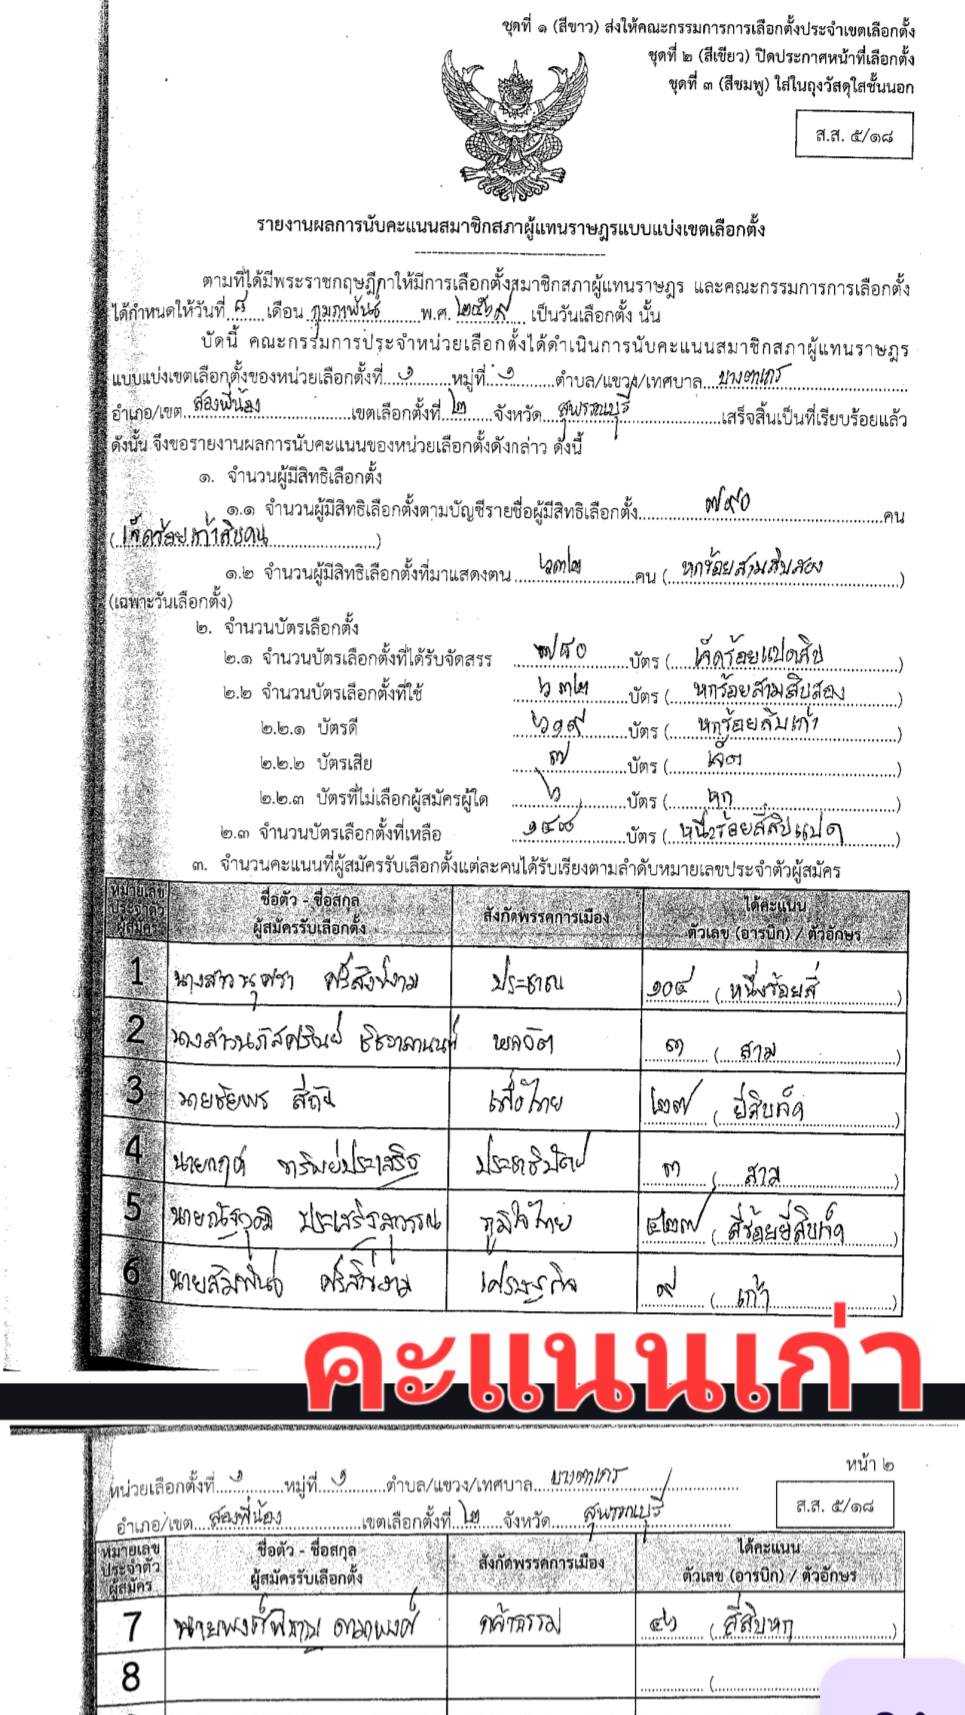 ชุดที่ ๑ (สีขาว) ส่งให้คณะกรรมการการเลือกตั้งประจำเขตเลือกตั้ง
ชุดที่ ๒ (สีเขียว) ปิดประกาศหน้าที่เลือกตั้ง
ชุดที่ ๓ (สีชมพู) ใส่ในถุงวัสดุใสชั้นนอก
ส.ส. ๕/๑๘
รายงานผลการนับคะแนนสมาชิกสภาผู้แทนราษฎรแบบแบ่งเขตเลือกตั้ง
ตามที่ได้มีพระราชกฤษฎีกาให้มีการเลือกตั้งสมาชิกสภาผู้แทนราษฎร และคณะกรรมการการเลือกตั้ง
ได้กำหนดให้วันที่ ๘ เดือน กุมภาพันธ์ พ.ศ. ๒๕๖๙ เป็นวันเลือกตั้ง นั้น
บัดนี้ คณะกรรมการประจำหน่วยเลือกตั้งได้ดำเนินการนับคะแนนสมาชิกสภาผู้แทนราษฎร
แบบแบ่งเขตเลือกตั้งของหน่วยเลือกตั้งที่ ๑ หมู่ที่ ๑ ตำบล/แขวง/เทศบาล บางตาเถร
อำเภอ/เขต สองพี่น้อง เขตเลือกตั้งที่ ๒ จังหวัด สุพรรณบุรี เสร็จสิ้นเป็นที่เรียบร้อยแล้ว
ดังนั้น จึงขอรายงานผลการนับคะแนนของหน่วยเลือกตั้งดังกล่าว ดังนี้
๑. จำนวนผู้มีสิทธิเลือกตั้ง
๑.๑ จำนวนผู้มีสิทธิเลือกตั้งตามบัญชีรายชื่อผู้มีสิทธิเลือกตั้ง ๗๙๐ คน
(เจ็ดร้อยเก้าสิบคน)
๑.๒ จำนวนผู้มีสิทธิเลือกตั้งที่มาแสดงตน ๖๓๒ คน (หกร้อยสามสิบสอง)
(เฉพาะวันเลือกตั้ง)
๒. จำนวนบัตรเลือกตั้ง
๒.๑ จำนวนบัตรเลือกตั้งที่ได้รับจัดสรร ๗๘๐ บัตร (เจ็ดร้อยแปดสิบ)
๒.๒ จำนวนบัตรเลือกตั้งที่ใช้ ๖๓๒ บัตร (หกร้อยสามสิบสอง)
๒.๒.๑ บัตรดี ๖๑๙ บัตร (หกร้อยสิบเก้า)
๒.๒.๒ บัตรเสีย ๗ บัตร (เจ็ด)
๒.๒.๓ บัตรที่ไม่เลือกผู้สมัครผู้ใด ๖ บัตร (หก)
๒.๓ จำนวนบัตรเลือกตั้งที่เหลือ ๑๔๘ บัตร (หนึ่งร้อยสี่สิบแปด)
๓. จำนวนคะแนนที่ผู้สมัครรับเลือกตั้งแต่ละคนได้รับเรียงตามลำดับหมายเลขประจำตัวผู้สมัคร
หมายเลขประจำตัวผู้สมัคร ชื่อตัว - ชื่อสกุล ผู้สมัครรับเลือกตั้ง สังกัดพรรคการเมือง ได้คะแนน ตัวเลข (อารบิก) / ตัวอักษร
1 นางสาว ศรีสิงห์งาม ประชาชน ๑๐๔ (หนึ่งร้อยสี่)
2 นางสาวนภัสศรัณย์ พลวัต ๓ (สาม)
3 นายชัยพร เพื่อไทย ๒๗ (ยี่สิบเจ็ด)
4 นาย ทรัพย์ประเสริฐ ประชาธิปัตย์ ๓ (สาม)
5 นายณัฐวุฒิ ประเสริฐสุวรรณ ภูมิใจไทย ๔๒๗ (สี่ร้อยยี่สิบเจ็ด)
6 นาย เศรษฐกิจ ๙ (เก้า)
คะแนนเก่า
หน้า ๒
หน่วยเลือกตั้งที่ ๑ หมู่ที่ ๑ ตำบล/แขวง/เทศบาล บางตาเถร
ส.ส. ๕/๑๘
อำเภอ/เขต สองพี่น้อง เขตเลือกตั้งที่ ๒ จังหวัด สุพรรณบุรี
หมายเลขประจำตัวผู้สมัคร ชื่อตัว - ชื่อสกุล ผู้สมัครรับเลือกตั้ง สังกัดพรรคการเมือง ได้คะแนน ตัวเลข (อารบิก) / ตัวอักษร
7 กล้าธรรม ๔๖ (สี่สิบหก)
8